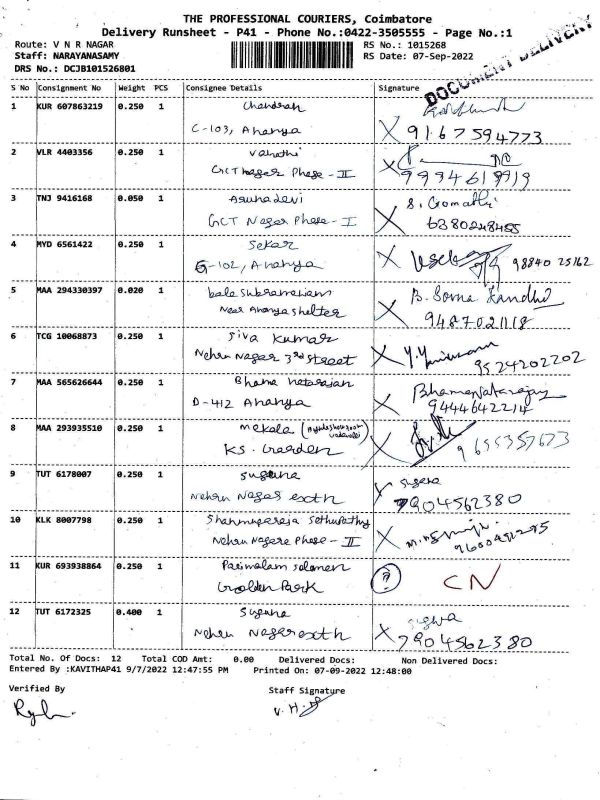 THE PROFESSIONAL COURIERS, Coimbatore
Delivery Runsheet - P41 - Phone No.:0422-3505555 - Page No.:1
Route: V N R NAGAR
RS No.: 1015268
Staff: NARAYANASAMY
RS Date: 07-Sep-2022
DRS No.: DCJB101526801
DOCUMENT DELIVERY
S No Consignment No Weight PCS Consignee Details Signature
1 KUR 607863219 0.250 1 Chandran
C-103, Ananya X 9167594773
2 VLR 4403356 0.250 1 Vanathi
GCT Nagar Phase - II X 9994619919
3 TNJ 9416168 0.050 1 Arunadevi S. Gomathi
GCT Nagar Phase - I X 6380248455
4 MYD 6561422 0.250 1 Sekar
G-102, Ananya X 98840 25162
5 MAA 294330397 0.020 1 balasubramaniam
Near Ananya shelter X 9487021118
6 TCG 10068873 0.250 1 Siva Kumar
Nehru Nagar 3rd Street X 9524202202
7 MAA 565626644 0.250 1 Bhama natarajan
D-412 Ananya X 9444642214
8 MAA 293935510 0.250 1 mekala
KS. Garden X 9655357673
9 TUT 6178007 0.250 1 suguna
Nehru Nagar X 7904562380
10 KLK 8007798 0.250 1 Shanmugaraja Sethupathy
Nehru Nagar Phase - II X
11 KUR 693938864 0.250 1 Parimalam solomen
Golden Park ? CN
12 TUT 6172325 0.400 1 Suguna
Nehru Nagar X 7904562380
Total No. Of Docs: 12 Total COD Amt: 0.00 Delivered Docs: Non Delivered Docs:
Entered By :KAVITHAP41 9/7/2022 12:47:55 PM Printed On: 07-09-2022 12:48:00
Verified By Staff Signature